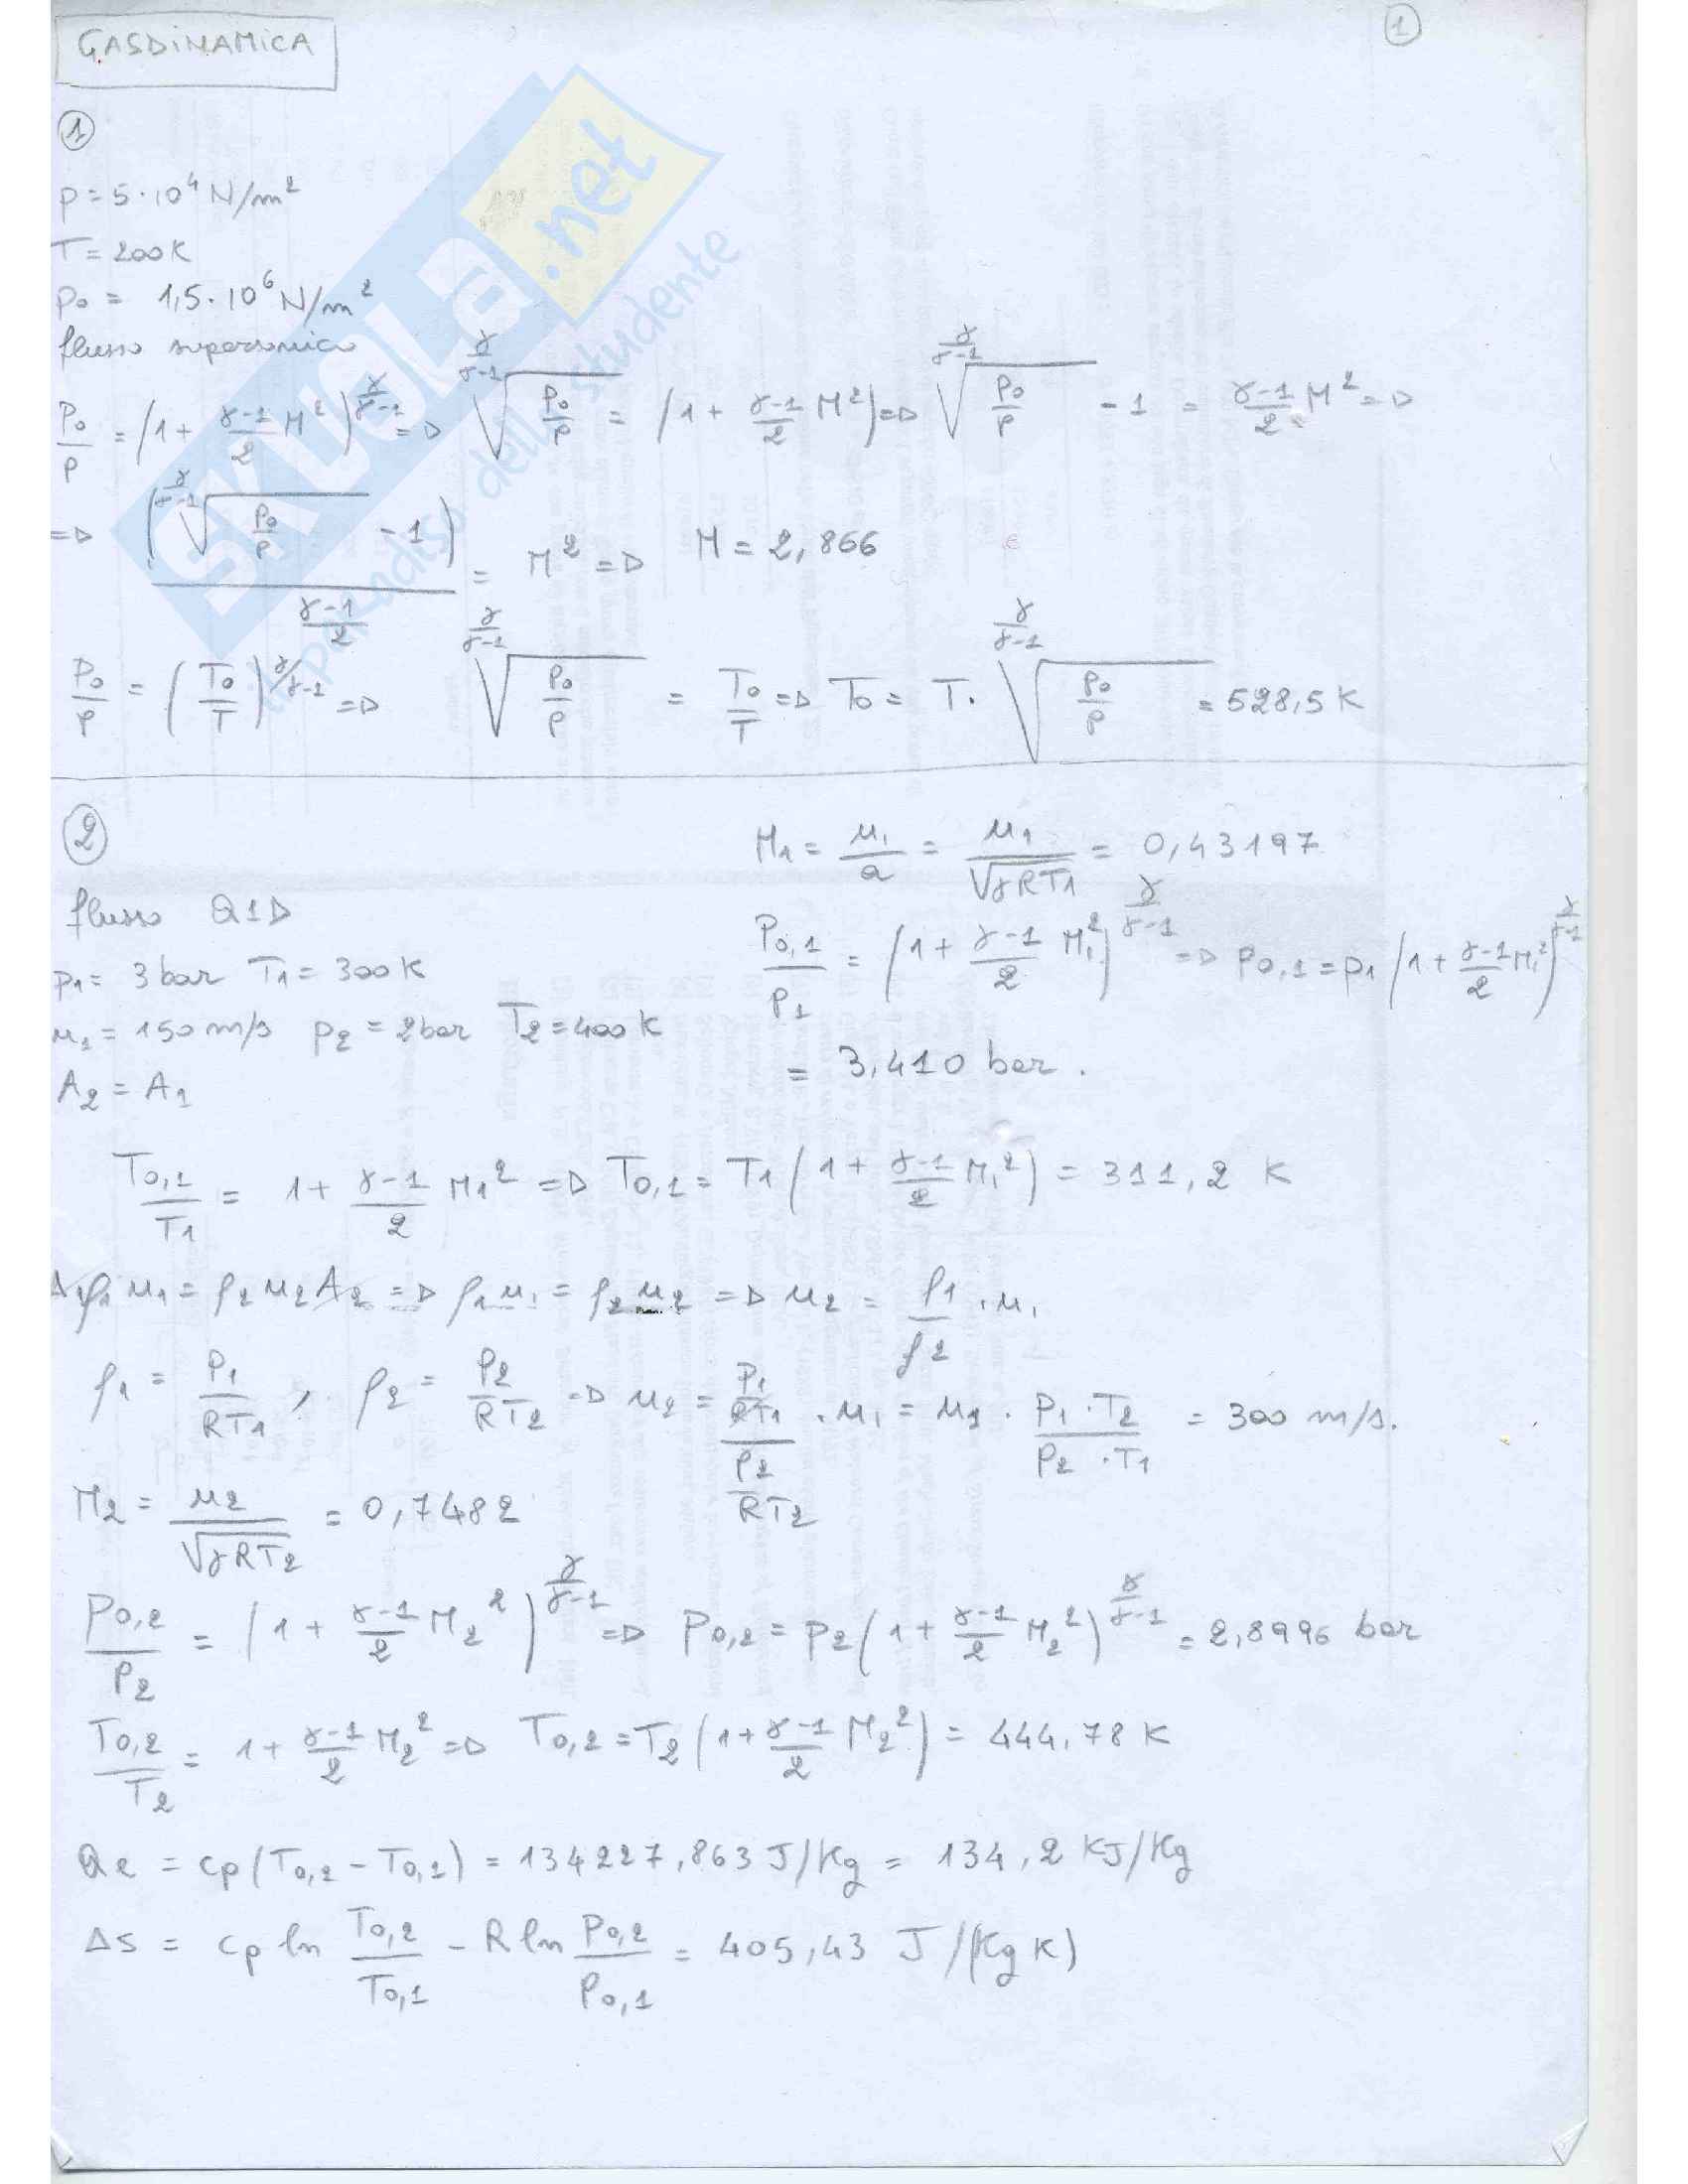 GASDINAMICA
1
1
p = 5·10⁴ N/m²
T = 200 K
p₀ = 1,5·10⁶ N/m²
flusso supersonico
p₀/p = (1 + (γ-1)/2 M²)^(γ/(γ-1)) => ^(γ/(γ-1))√(p₀/p) = (1 + (γ-1)/2 M²) => ^(γ/(γ-1))√(p₀/p) - 1 = (γ-1)/2 M² =>
=> (^(γ/(γ-1))√(p₀/p) - 1) / ((γ-1)/2) = M² => M = 2,866
p₀/p = (T₀/T)^(γ/(γ-1)) => ^(γ/(γ-1))√(p₀/p) = T₀/T => T₀ = T · ^(γ/(γ-1))√(p₀/p) = 528,5 K
2
flusso Q1D
p₁ = 3 bar T₁ = 300 K
u₁ = 150 m/s p₂ = 2 bar T₂ = 400 K
A₂ = A₁
M₁ = u₁/a = u₁/√(γRT₁) = 0,43197
p₀,₁/p₁ = (1 + (γ-1)/2 M₁²)^(γ/(γ-1)) => p₀,₁ = p₁ (1 + (γ-1)/2 M₁²)^(γ/(γ-1))
= 3,410 bar.
T₀,₁/T₁ = 1 + (γ-1)/2 M₁² => T₀,₁ = T₁ (1 + (γ-1)/2 M₁²) = 311,2 K
A₁ρ₁u₁ = ρ₂u₂A₂ => ρ₁u₁ = ρ₂u₂ => u₂ = ρ₁/ρ₂ · u₁
ρ₁ = p₁/(RT₁), ρ₂ = p₂/(RT₂) => u₂ = (p₁/(RT₁))/(p₂/(RT₂)) · u₁ = u₁ · (p₁·T₂)/(p₂·T₁) = 300 m/s.
M₂ = u₂/√(γRT₂) = 0,7482
p₀,₂/p₂ = (1 + (γ-1)/2 M₂²)^(γ/(γ-1)) => p₀,₂ = p₂ (1 + (γ-1)/2 M₂²)^(γ/(γ-1)) = 2,8996 bar
T₀,₂/T₂ = 1 + (γ-1)/2 M₂² => T₀,₂ = T₂ (1 + (γ-1)/2 M₂²) = 444,78 K
Qe = cp (T₀,₂ - T₀,₁) = 134227,863 J/Kg = 134,2 KJ/Kg
Δs = cp ln T₀,₂/T₀,₁ - R ln p₀,₂/p₀,₁ = 405,43 J/(Kg K)
SKUOLA.net
il paradiso dello studente